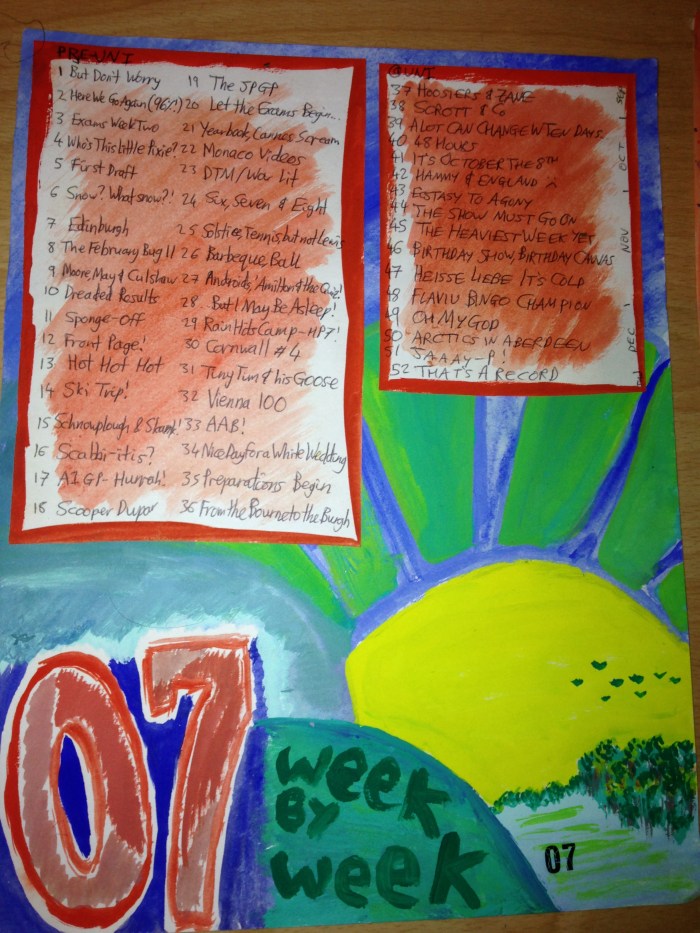 PRE-UNI
1 But Don't Worry
2 Here We Go Again (96%)
3 Exams Week Two
4 Who's This Little Pixie?
5 First Draft
6 Snow? What snow?!
7 Edinburgh
8 The February Bug II
9 Moore, May & Culshaw
10 Dreaded Results
11 Sponge-Off
12 Front Page!
13 Hot Hot Hot
14 Ski Trip!
15 Schnowplough &
16 Scabbi-itis?
17 A1GP - Hurrah!
18 Scooper Duper
19 The JPGP
20 Let the Exams Begin...
21 Yearbook, Cannes, Scream
22 Monaco Videos
23 DTM/War Lit
24 Six, Seven & Eight
25 Solstice, Tennis, but not Lewis
26 Barbeque, Ball
27 Androids, Amilton & the Quiz!
28 But I May Be Asleep!
29 Rain Hits Camp - HP7!
30 Cornwall #4
31 Tiny Tim & his Goose
32 Vienna 100
33 AAB!
34 Nice Day for a White Wedding
35 Preparations Begin
36 From the Bourne to the Burgh
@UNI
37 HOOSIERS & ZANE
38 SCROTT & Co
39 A LOT CAN CHANGE IN TEN DAYS
40 48 HOURS
41 IT'S OCTOBER THE 8TH
42 HAMMY & ENGLAND :(
43 ECSTASY TO AGONY
44 THE SHOW MUST GO ON
45 THE HEAVIEST WEEK YET
46 BIRTHDAY SHOW, BIRTHDAY
47 HEISSE LIEBE / IT'S COLD
48 FLAVIU BINGO CHAMPION
49 OH MY GOD
50 ARCTICS IN ABERDEEN
51 JAAAY-P!
52 THAT'S A RECORD
SEP
OCT
NOV
DEC
07
week
BY
week
07